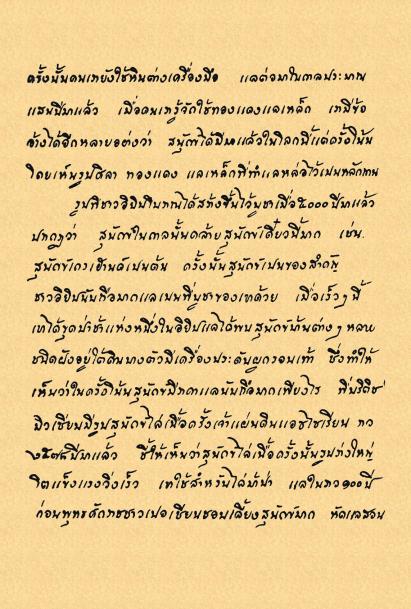 ครั้งนั้นคนเรายังใช้หินต่างเครื่องมือ แลต่อมาในกาลประมาน
แสนปีมาแล้ว เมื่อคนเรารู้จักใช้ทองแดงแลเหล็ก เรามีข้อ
อ้างได้อีกหลายอย่างว่า สุนัขได้มีมาแล้วในโลกนี้แต่ครั้งนั้น
โดยเห็นรูปศิลา ทองแดง แลเหล็กที่ทำแลหล่อไว้เปนหลักถาน
รูปที่ชาวอิยิปโบราณได้สร้างขึ้นไว้บูชาเมื่อ๕๐๐๐ปีมาแล้ว
ปรากฏว่า สุนัขในกาลนั้นคล้ายสุนัขเดี๋ยวนี้มาก เช่น
สุนัขเกรเฮานด์เปนต้น ครั้งนั้นสุนัขเปนของสำคัญ
ชาวอิยิปนับถือมากแลเปนที่บูชาของเขาด้วย เมื่อเร็วๆนี้
เขาได้ขุดป่าช้าแห่งหนึ่งในอิยิปแลได้พบสุนัขพันธุ์ต่างๆหลาย
ชนิดฝังอยู่ใต้ดินบางตัวมีเครื่องประดับผูกรอบเท้า ซึ่งทำให้
เห็นว่าในครั้งนั้นสุนัขมีราคาแลนับถือมากเพียงไร ที่บริติช
มิวเซียมมีรูปสุนัขไล่เนื้อครั้งเจ้าแผ่นดินแอซไซเรียน ราว
๒๕๗๕ปีมาแล้ว ชี้ให้เห็นว่าสุนัขไล่เนื้อครั้งนั้นรูปร่างใหญ่
จิตแข็งแรงวิ่งเร็ว เขาใช้สำหรับไล่ม้าป่า แลในราว๑๐๐ปี
ก่อนพุทธศักราชชาวเปอเซียนชอบเลี้ยงสุนัขมาก หัดแลสอน